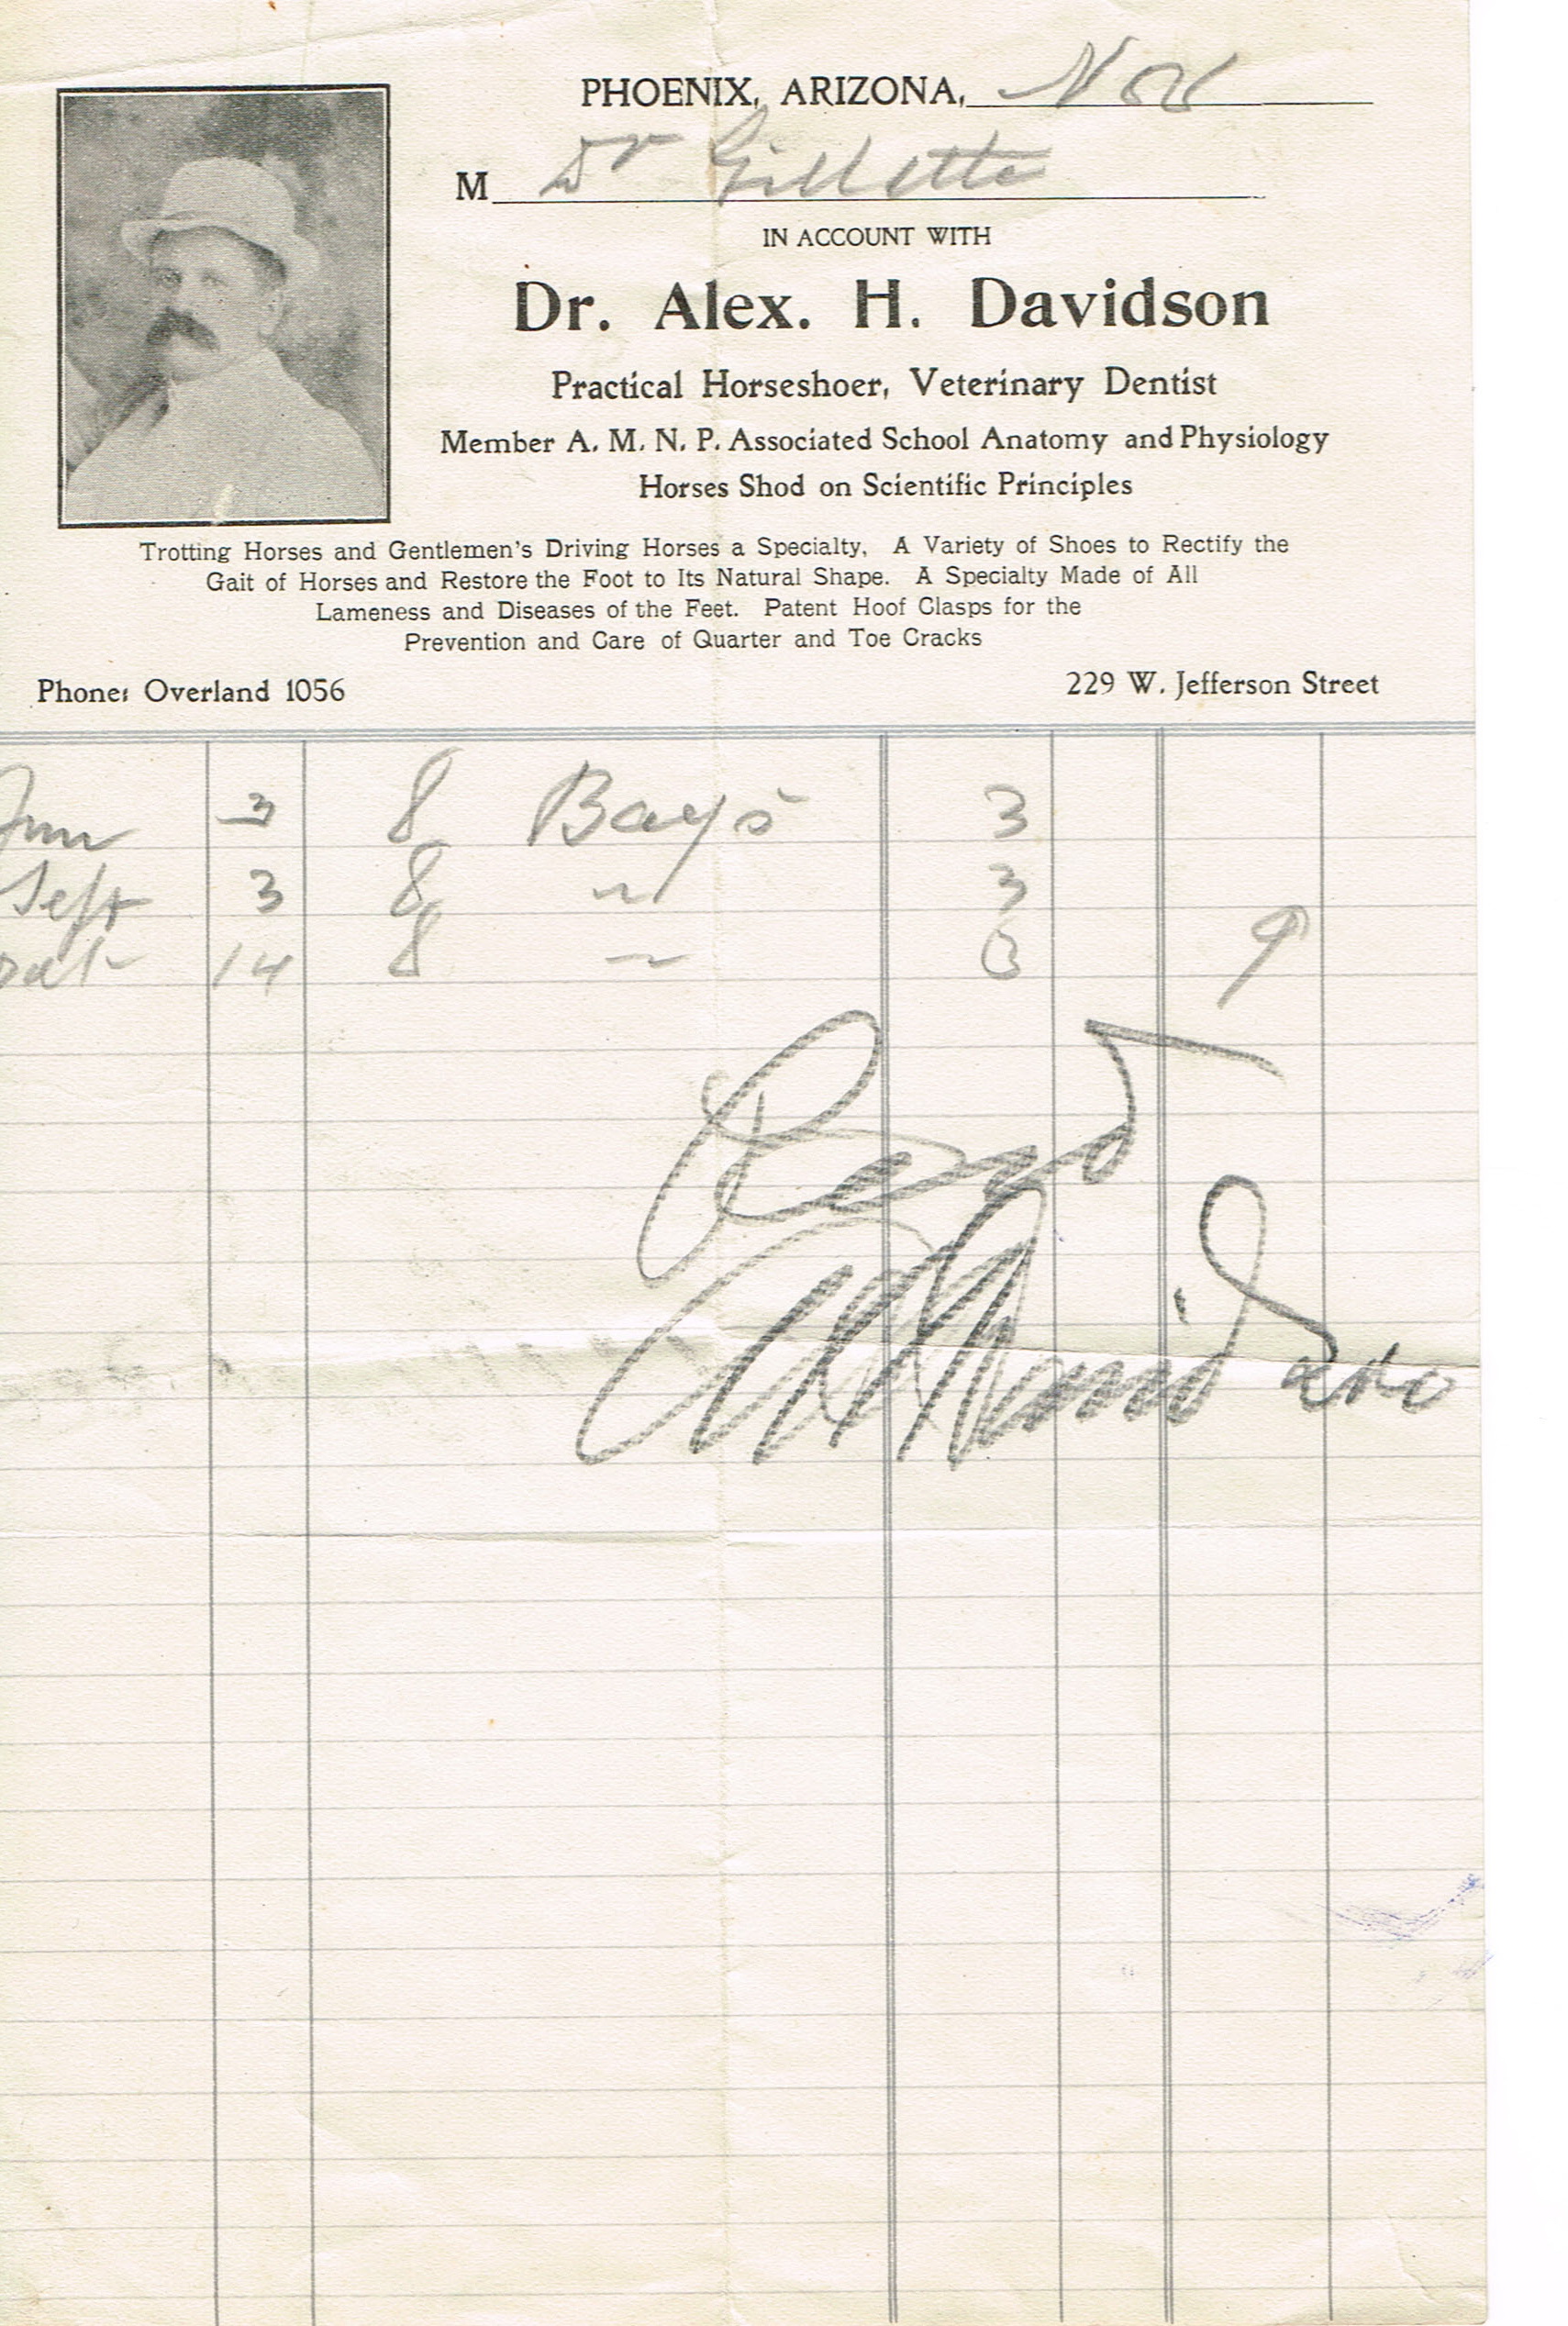 PHOENIX, ARIZONA, Nov
M Dr Gillette
IN ACCOUNT WITH
Dr. Alex. H. Davidson
Practical Horseshoer, Veterinary Dentist
Member A. M. N. P. Associated School Anatomy and Physiology
Horses Shod on Scientific Principles
Trotting Horses and Gentlemen's Driving Horses a Specialty. A Variety of Shoes to Rectify the
Gait of Horses and Restore the Foot to Its Natural Shape. A Specialty Made of All
Lameness and Diseases of the Feet. Patent Hoof Clasps for the
Prevention and Care of Quarter and Toe Cracks
Phone: Overland 1056 229 W. Jefferson Street
3 8 Bays 3
Sept 3 8 " 3
Oct 14 8 " 3 9
AH Davidson